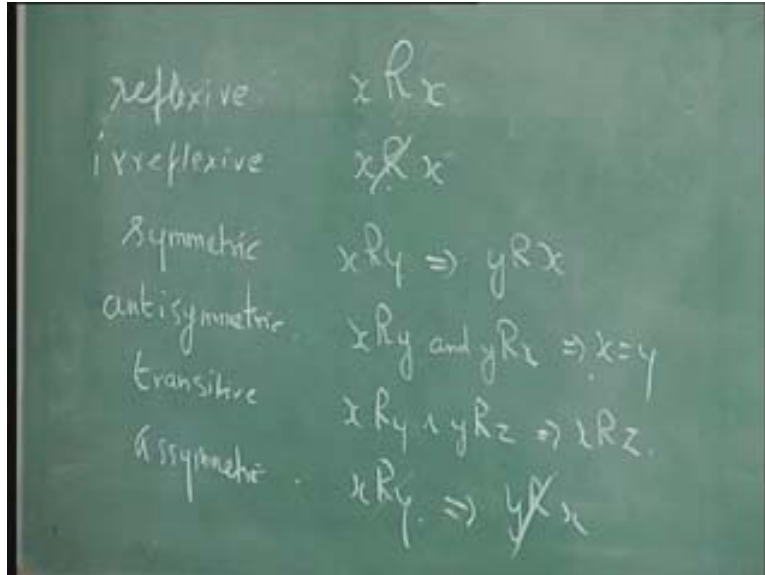 reflexive xRx
irreflexive xR̸x
symmetric xRy ⇒ yRx
antisymmetric. xRy and yRx ⇒ x=y
transitive xRy ∧ yRz ⇒ xRz.
assymmetric. xRy. ⇒ yR̸x